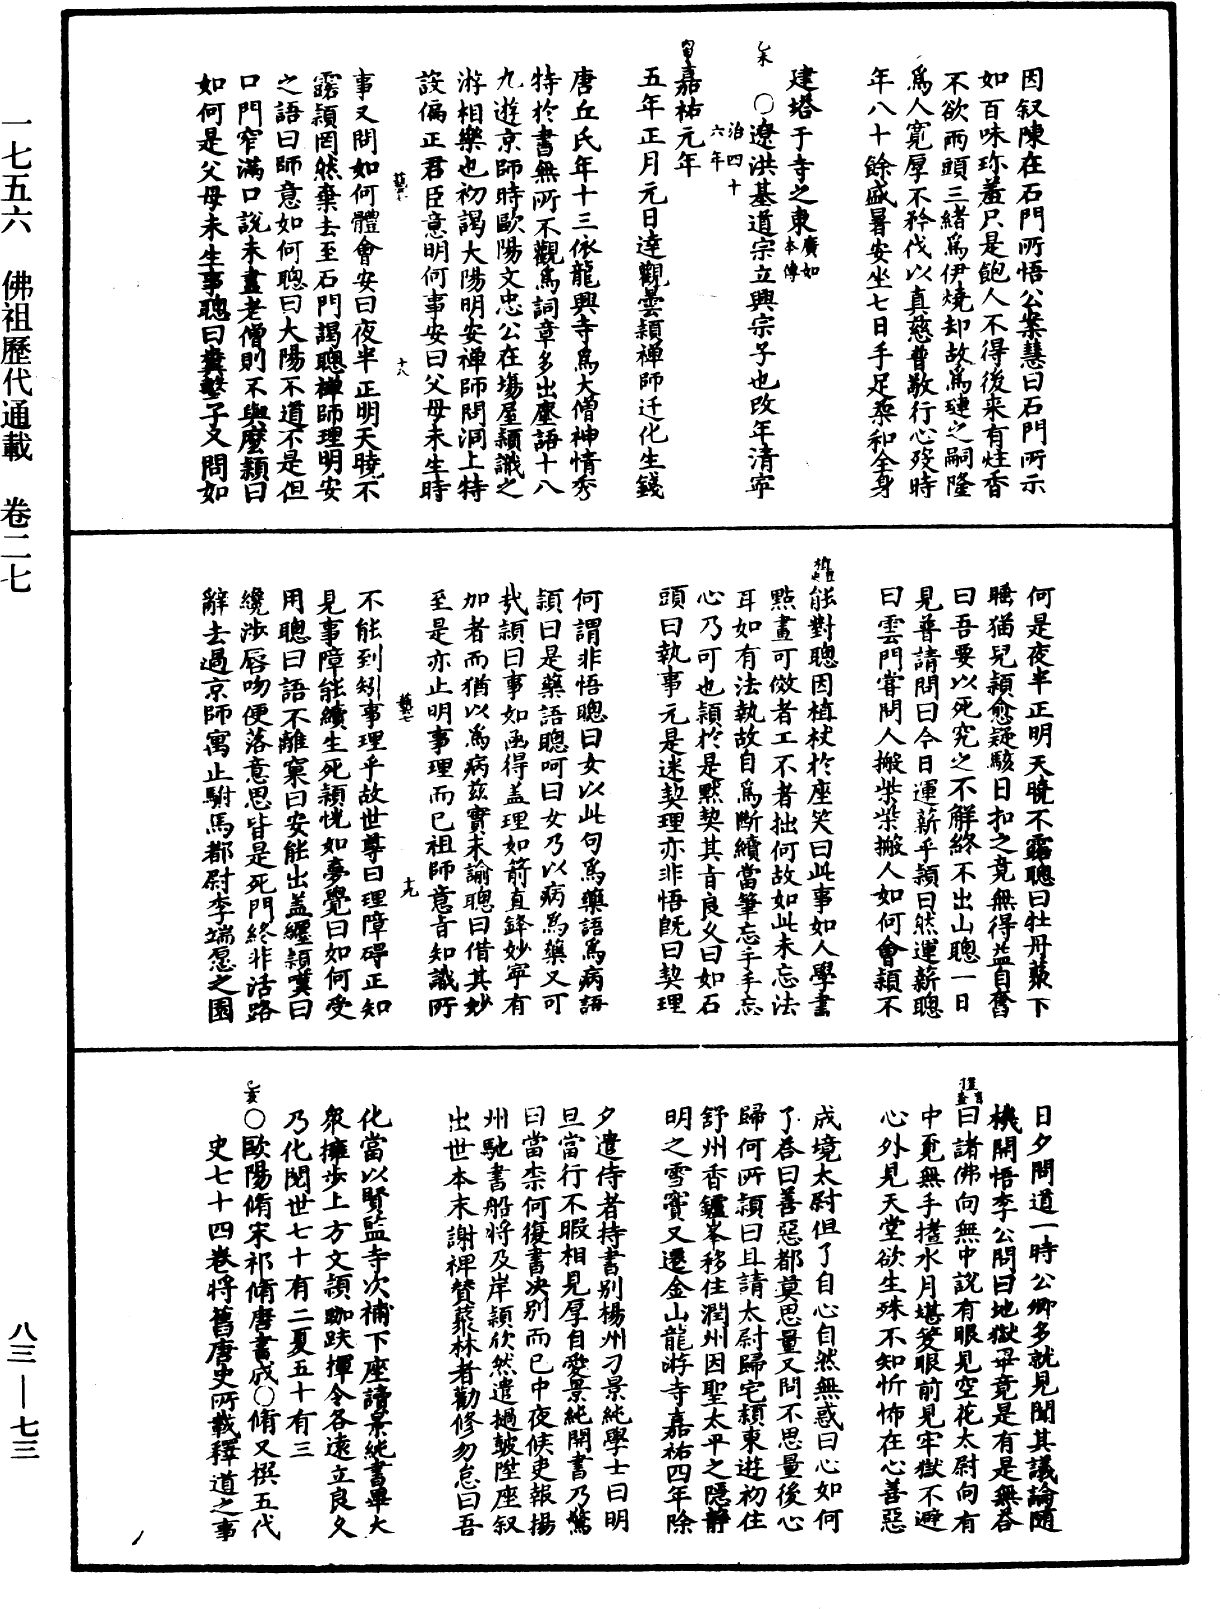 一七五六　佛祖歷代通載　卷二七
八三—七三
因叙陳在石門所悟公案慧曰石門所示
如百味珎羞只是飽人不得後来有炷香
不欲兩頭三緒爲伊燒却故爲璉之嗣隆
爲人寬厚不矜伐以真慈普敬行心殁時
年八十餘盛暑安坐七日手足葇和全身
建塔于寺之東廣如本傳
乙未　〇遼洪基道宗立興宗子也改年清寜
治四十六年
嘉祐元年
五年正月元日達觀曇頴禅師迁化生錢
唐丘氏年十三依龍興寺爲大僧神情秀
特於書無所不觀爲詞章多出塵語十八
九遊京師時歐陽文忠公在塲屋頴識之
游相樂也初謁大陽明安禅師問洞上特
設偏正君臣意明何事安曰父母未生時
十八
事又問如何體會安曰夜半正明天曉不
露頴罔然棄去至石門謁聰禅師理明安
之語曰師意如何聰曰大陽不道不是但
口門窄滿口說未盡老僧則不與麽頴曰
如何是父母未生事聰曰糞墼子又問如
何是夜半正明天曉不露聰曰牡丹藂下
睡猫兒頴愈疑駭日扣之竟無得益自奮
曰吾要以死究之不解終不出山聰一日
見普請問曰今日運薪乎頴曰然運薪聰
曰雲門甞問人搬柴柴搬人如何會頴不
能對聰因植杖於座笑曰此事如人學書
㸃畫可傚者工不者拙何故如此未忘法
耳如有法執故自爲斷續當筆忘手手忘
心乃可也頴於是黙契其旨良乆曰如石
頭曰執事元是迷契理亦非悟旣曰契理
何謂非悟聰曰女以此句爲藥語爲病語
頴曰是藥語聰呵曰女乃以病爲藥又可
㢤頴曰事如函得盖理如箭直鋒妙寜有
加者而猶以爲病兹實未諭聰曰借其妙
至是亦止明事理而已祖師意旨知識所
十九
不能到矧事理乎故世尊曰理障礙正知
見事障能續生死頴恍如夢覺曰如何受
用聰曰語不離窠曰安能出盖纒頴嘆曰
纔涉唇吻便落意思皆是死門終非活路
辭去過京師寓止駙馬都尉李端愿之園
日夕問道一時公卿多就見聞其議論随
機開悟李公問曰地獄畢竟是有是無荅
曰諸佛向無中說有眼見空花太尉向有
中覓無手搘水月堪笑眼前見牢獄不避
心外見天堂欲生殊不知忻怖在心善惡
成境太尉但了自心自然無惑曰心如何
了荅曰善惡都莫思量又問不思量後心
歸何所頴曰且請太尉歸宅頴東遊初住
舒州香鑪峯移住潤州因聖太平之隱静
明之雪竇又遷金山龍游寺嘉祐四年除
夕遣侍者持書别楊州刁景純學士曰明
旦當行不暇相見厚自愛景純開書乃驚
曰當柰何復書决别而已中夜候吏報揚
州馳書船將及岸頴欣然遣撾皷陞座叙
出世本末謝裨賛藂林者勸修勿怠曰吾
化當以賢監寺次補下座讀景純書畢大
衆擁步上方丈頴跏趺撣令各遠立良久
乃化閱世七十有二夏五十有三
〇歐陽脩宋祁脩唐書成〇脩又撰五代
史七十四卷將舊唐史所載釋道之事